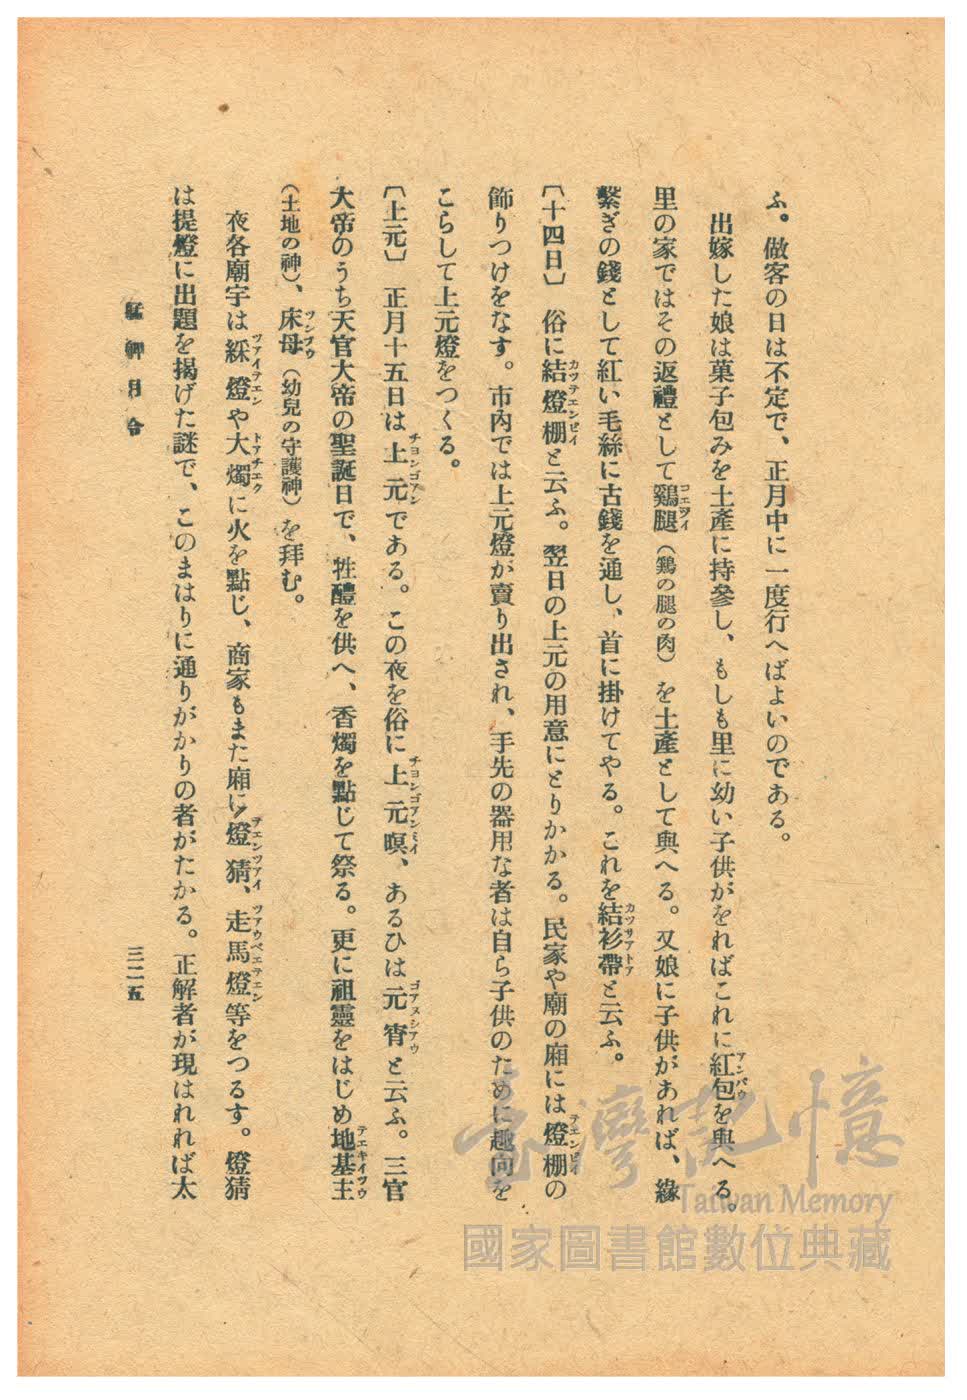 ふ。做客の日は不定で、正月中に一度行へばよいのである。
出嫁した娘は菓子包みを土產に持參し、もしも里に幼い子供がをればこれに紅包を與へる。
アンパウ
里の家ではその返禮として鷄腿（鷄の腿の肉）を土產として與へる。又娘に子供があれば、緣
コエツイ
繫ぎの錢として紅い毛絲に古錢を通し、首に掛けてやる。これを結衫帶と云ふ。
カツサアトア
〔十四日〕　俗に結燈棚と云ふ。翌日の上元の用意にとりかかる。民家や廟の廂には燈棚の
カツテエンピイ
テエンピイ
飾りつけをなす。市內では上元燈が賣り出され、手先の器用な者は自ら子供のために趣向を
こらして上元燈をつくる。
〔上元〕　正月十五日は上元である。この夜を俗に上元暝、あるひは元宵と云ふ。三官
チヨンゴアン
チヨンゴアンミイ
ゴアヌシアウ
大帝のうち天官大帝の聖誕日で、牲醴を供へ、香燭を點じて祭る。更に祖靈をはじめ地基主
テエキイツウ
（土地の神）、床母（幼兒の守護神）を拜む。
ツンブウ
夜各廟宇は綵燈や大燭に火を點じ、商家もまた廂に燈猜、走馬燈等をつるす。燈猜
ツアイテエン
トアチエク
テエンツアイ
ツアウベエテエン
は提燈に出題を揭げた謎で、このまはりに通りがかりの者がたかる。正解者が現はれれば太
艋舺月令
三二五
臺灣記憶
Taiwan Memory
國家圖書館數位典藏